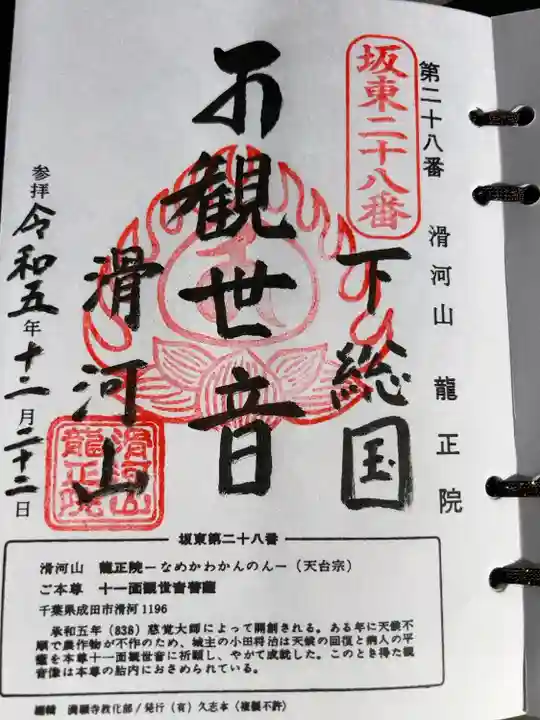 第二十八番 滑河山 龍正院
坂東二十八番
下総国
観世音
滑河山
滑河山
龍正院
参拝 令和五年十二月二十二日
坂東第二十八番
滑河山 龍正院－なめかわかんのん－（天台宗）
ご本尊 十一面観世音菩薩
千葉県成田市滑河1196
承和五年（838）慈覚大師によって開創される。ある年に天候不
順で農作物が不作のため、城主の小田将治は天候の回復と病人の平
癒を本尊十一面観世音に祈願し、やがて成就した。このとき得た観
音像は本尊の胎内におさめられている。
編輯 満願寺教化部／発行（有）久志本（複製不許）